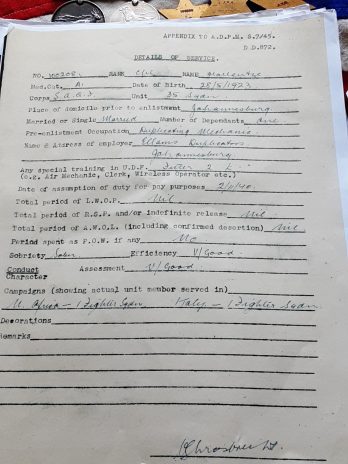 APPENDIX TO A.D.P.M. 8.9/45.
D D.872.
DETAILS OF SERVICE.
NO. RANK NAME
Med.Cat. A. Date of Birth 28/5/1923
Corps S.A.A.F. Unit 35 Sqdn
Place of domicile prior to enlistment Johannesburg
Married or Single Married Number of Dependants One
Pre-enlistment Occupation Duplicating Mechanic
Name & Address of employer Ellams Duplicators
Johannesburg
Any special training in U.D.F.
(e.g. Air Mechanic, Clerk, Wireless Operator etc.)
Date of assumption of duty for pay purposes
Total period of L.W.O.P. Nil
Total period of R.S.P. and/or indefinite release Nil
Total period of A.W.O.L. (including confirmed desertion) Nil
Period spent as P.O.W. if any No
Sobriety Sober Efficiency V/Good
Conduct Assessment V/Good
Character
Campaigns (showing actual unit member served in)
N. Africa - 1 Fighter Sqdn Italy - 1 Fighter Sqdn
Decorations
Remarks